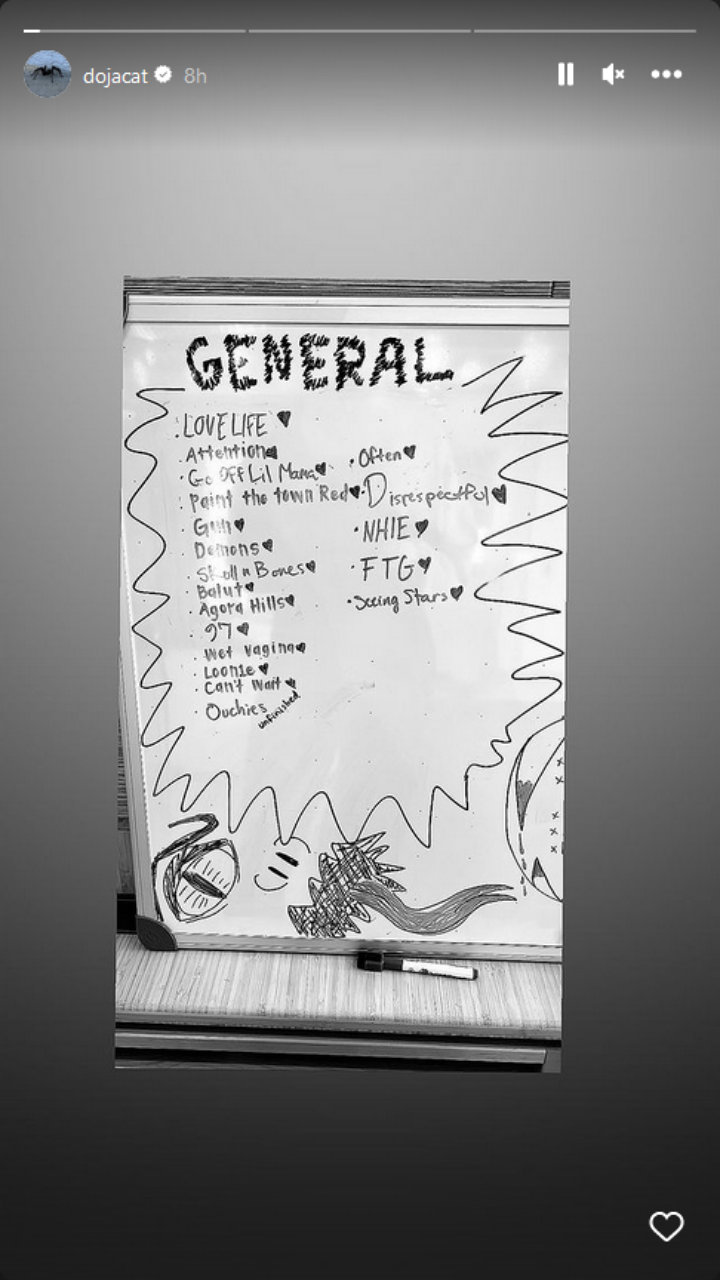 dojacat 8h
GENERAL
LOVE LIFE
Attention
Go Off Lil Mama
Paint the town Red
Gun
Demons
Skull n Bones
Balut
Agora Hills
97
Wet Vagina
Loonie
Can't Wait
Ouchies
unfinished
Often
Disrespectful
NHIE
FTG
Seeing Stars